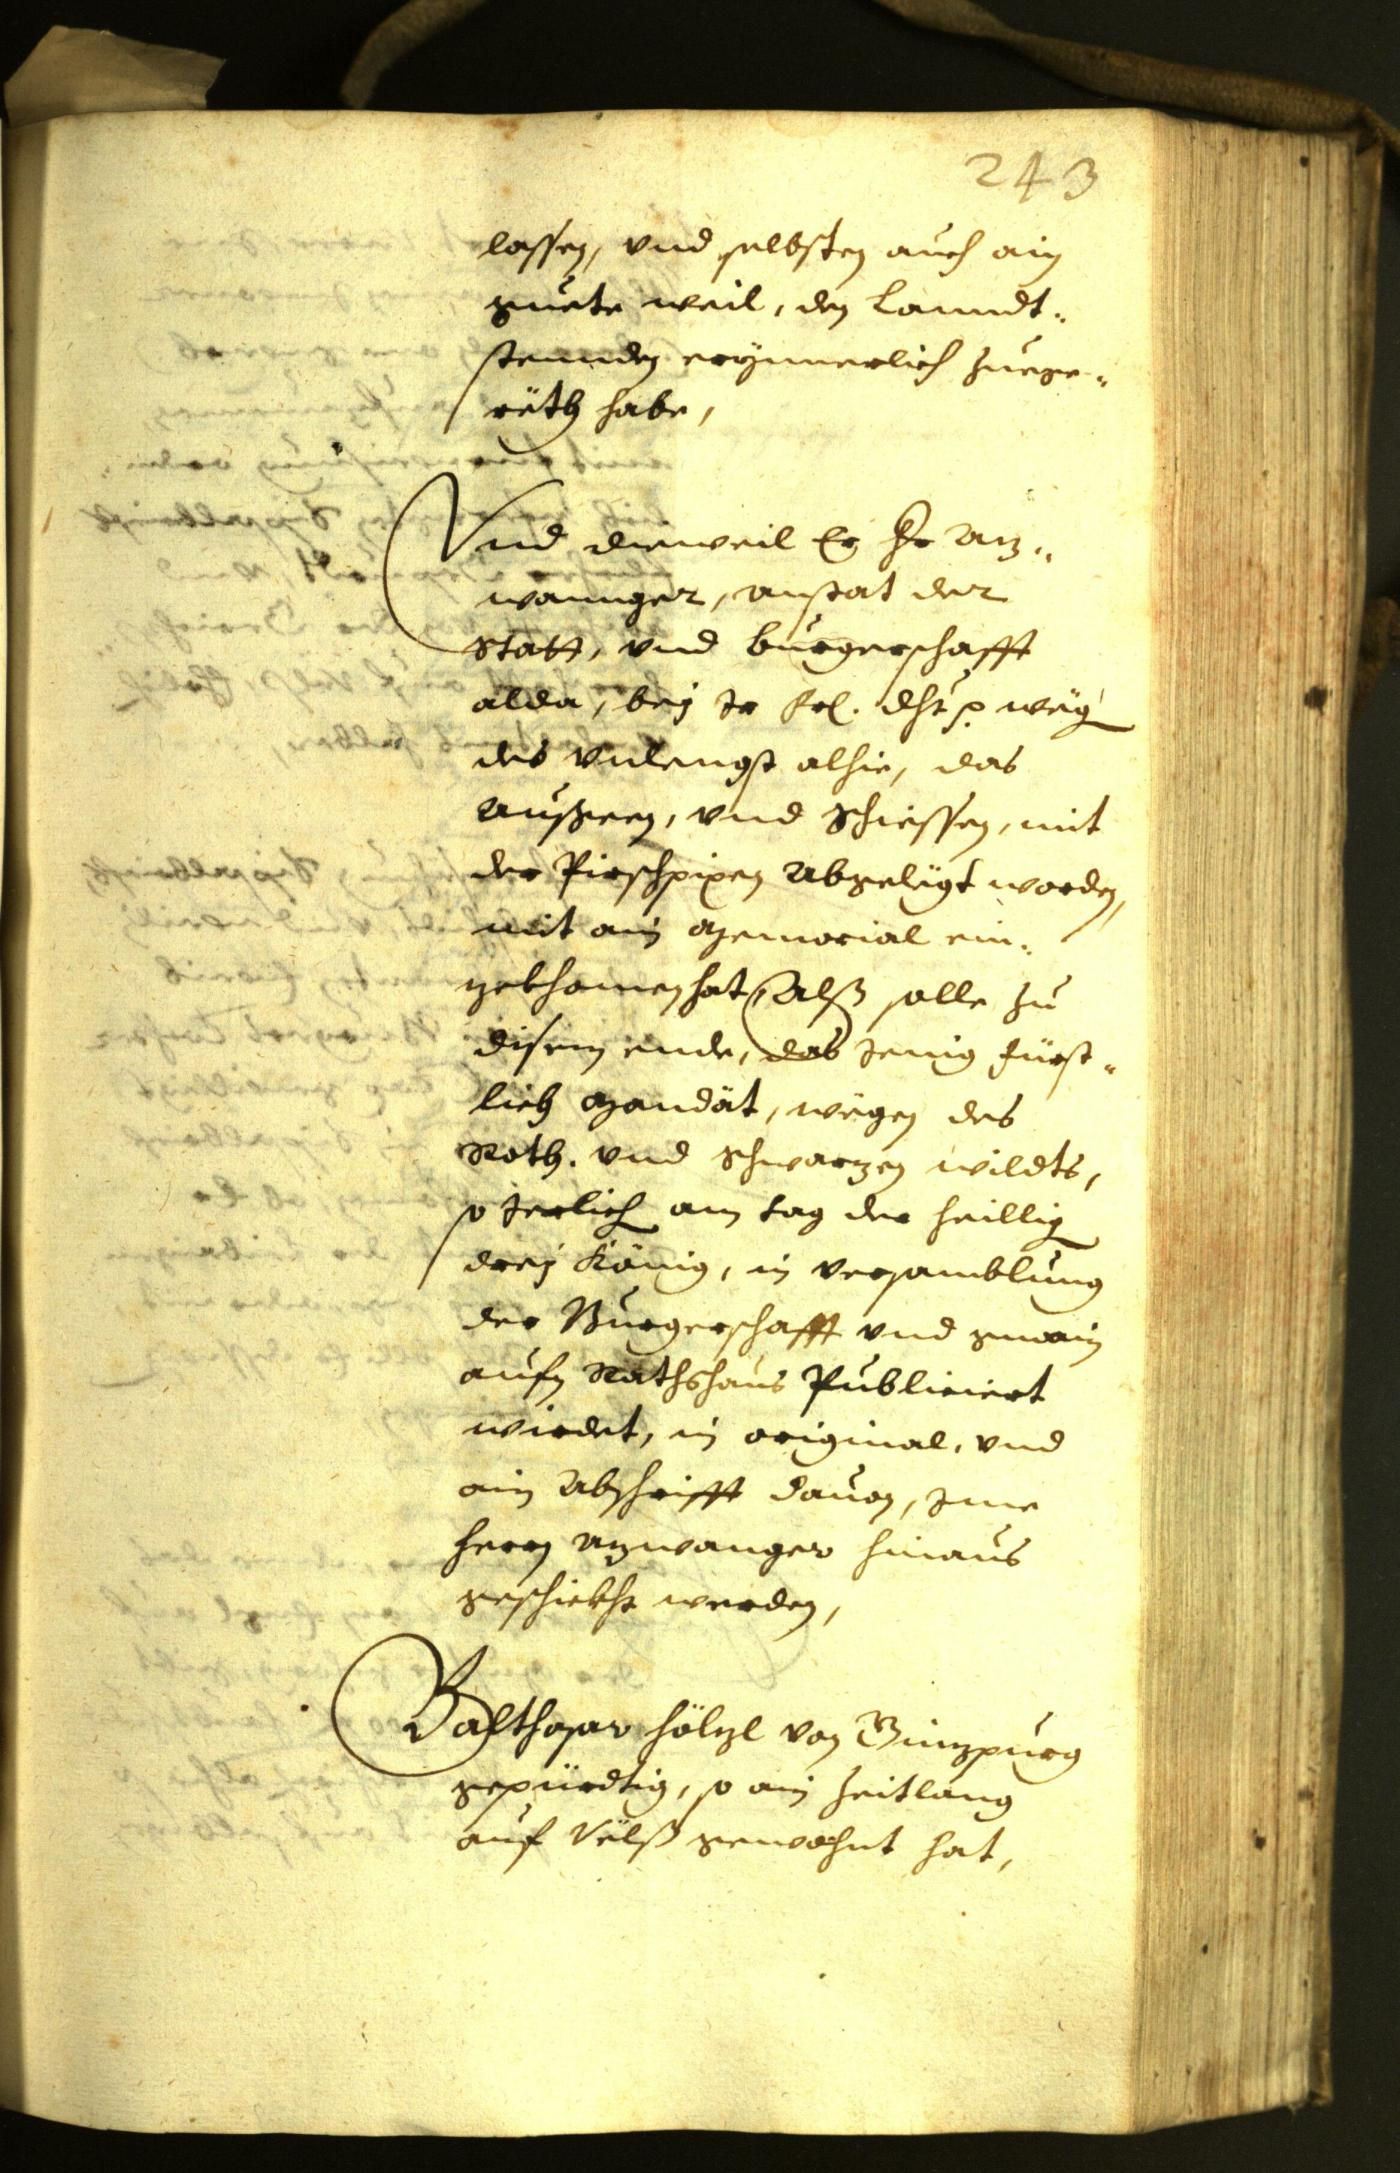 243
lassen, vnd selbsten auch ain
guete weil, den Lanndt„
stennden erynnerlich zuege„
rëth habe,
Vnd dieweil Er Hr Atz„
wannger, anstat der
Statt, vnd burgerschafft
alda, bej Jr Frl. Dht p weg
des vnlengst alhie, das
Außgeen, vnd Schiessen, mit
der Pirschpixen Abgelegt worden,
mit ain Memorial ein„
gekhomen hat, Alß solle zu
disem ende, das Jenig fürst„
lich Mandät, wegen des
Roth. vnd Schwarzen wildts,
so Jerlich am tag der heillig
dreij König, in versamblung
der Burgerschafft vnd gmain
aufm Rathshaus Publiciert
wirdet, in original, vnd
ain Abschrifft dauon, Jme
herrn Azwanger hinaus
geschickht werden,
Balthasar Hölzl von Günzpurg
gepürdtig, so ain Zeitlang
auf Vëlß gewohnt hat,